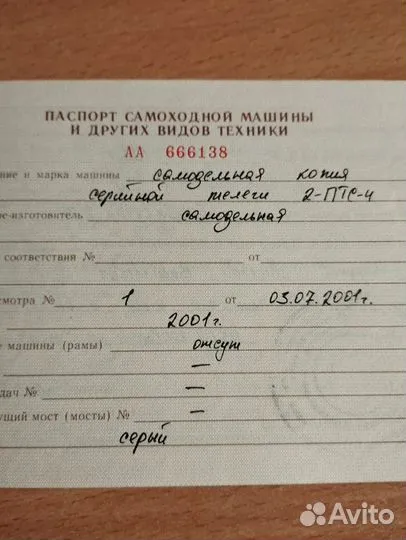 ПАСПОРТ САМОХОДНОЙ МАШИНЫ
И ДРУГИХ ВИДОВ ТЕХНИКИ
АА 666138
ние и марка машины самодельная копия
серийной телеги 2-ПТС-4
е-изготовитель самодельная
соответствия № от
смотра № 1 от 03.07.2001г.
2001г.
е машины (рамы) отсут
—
дач № —
ущий мост (мосты) № —
серый
Avito